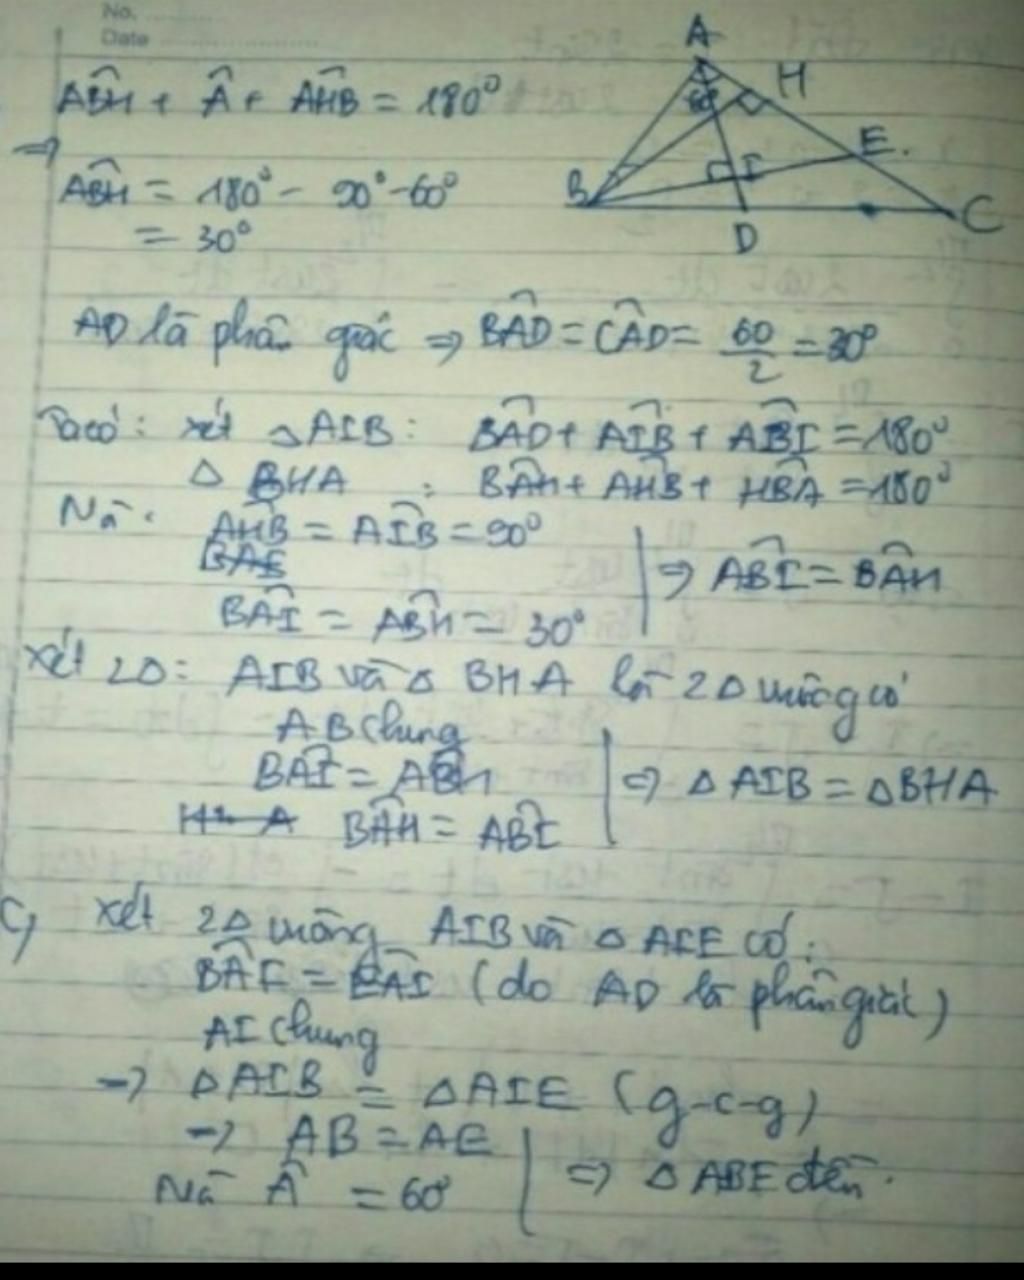 No. ............
Date ............
A
H
60°
E.
B
I
C
D
ABH + Â + AHB = 180°
=>
ABH = 180° - 90° - 60°
= 30°
AD là phân giác => BAD = CAD = 60/2 = 30°
Ta có: xét △AIB: BAD + AIB + ABI = 180°
△ BHA : BAH + AHB + HBA = 180°
Mà: AHB = AIB = 90°
BAE
BAI = ABH = 30°
=> ABI = BAH
Xét 2△: AIB và △ BHA là 2△ vuông có
AB chung
BAI = ABH
=> △AIB = △BHA
BAH = ABI
C, Xét 2△ vuông AIB và △ AIE có:
BAI = EAI (do AD là phân giác)
AI chung
-> △AIB = △AIE (g-c-g)
-> AB = AE
Mà Â = 60°
=> △ABE đều.